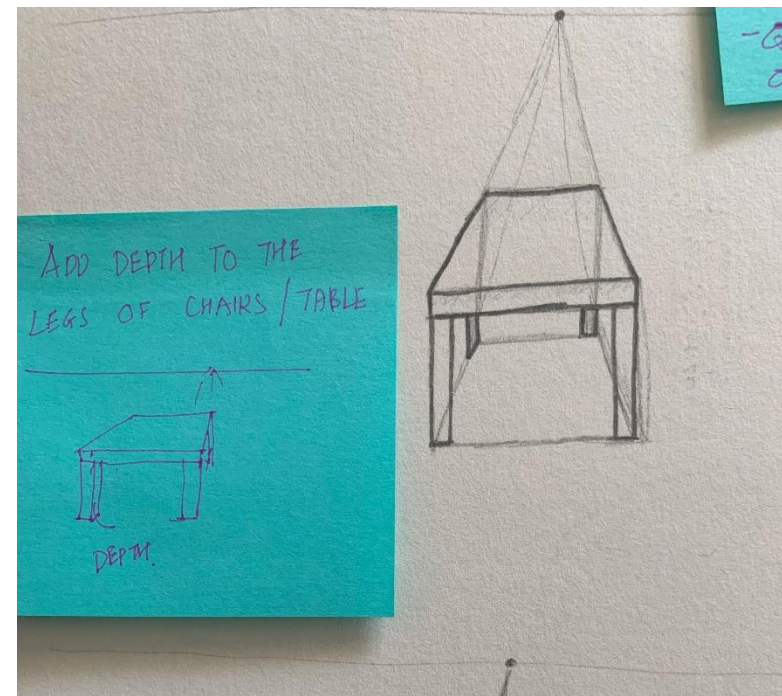 ADD DEPTH TO THE
LEGS OF CHAIRS / TABLE
DEPTH.